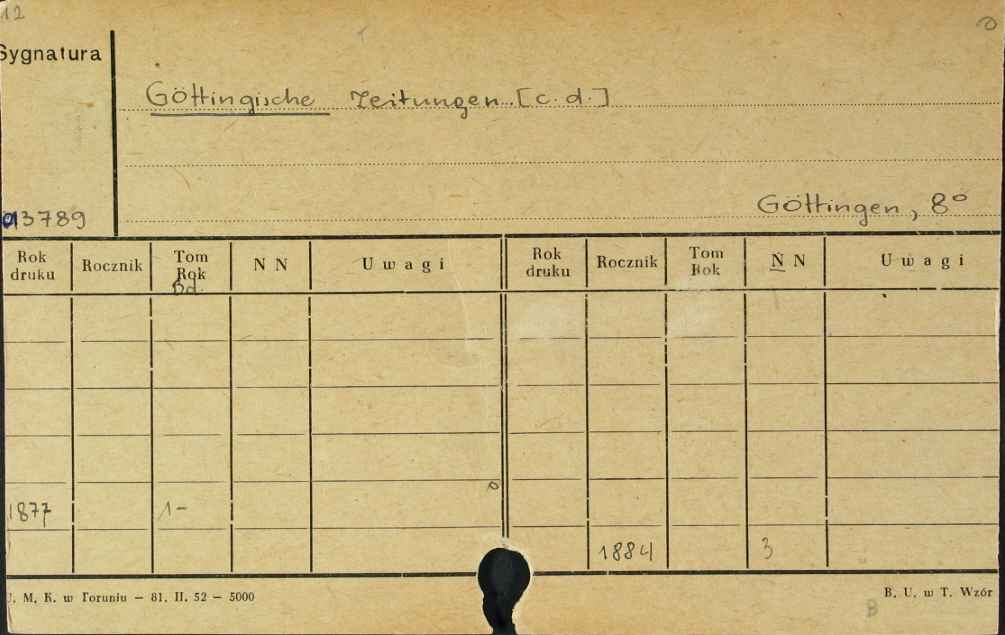 12
Sygnatura
Göttingische Zeitungen [c. d.]
Göttingen, 8°
013789
Rok druku Rocznik Tom Rok Bd. N N Uwagi Rok druku Rocznik Tom Rok N N Uwagi
1877 1-
1884 3
U. M. K. w Toruniu — 81. II. 52 — 5000
B. U. w T. Wzór
B